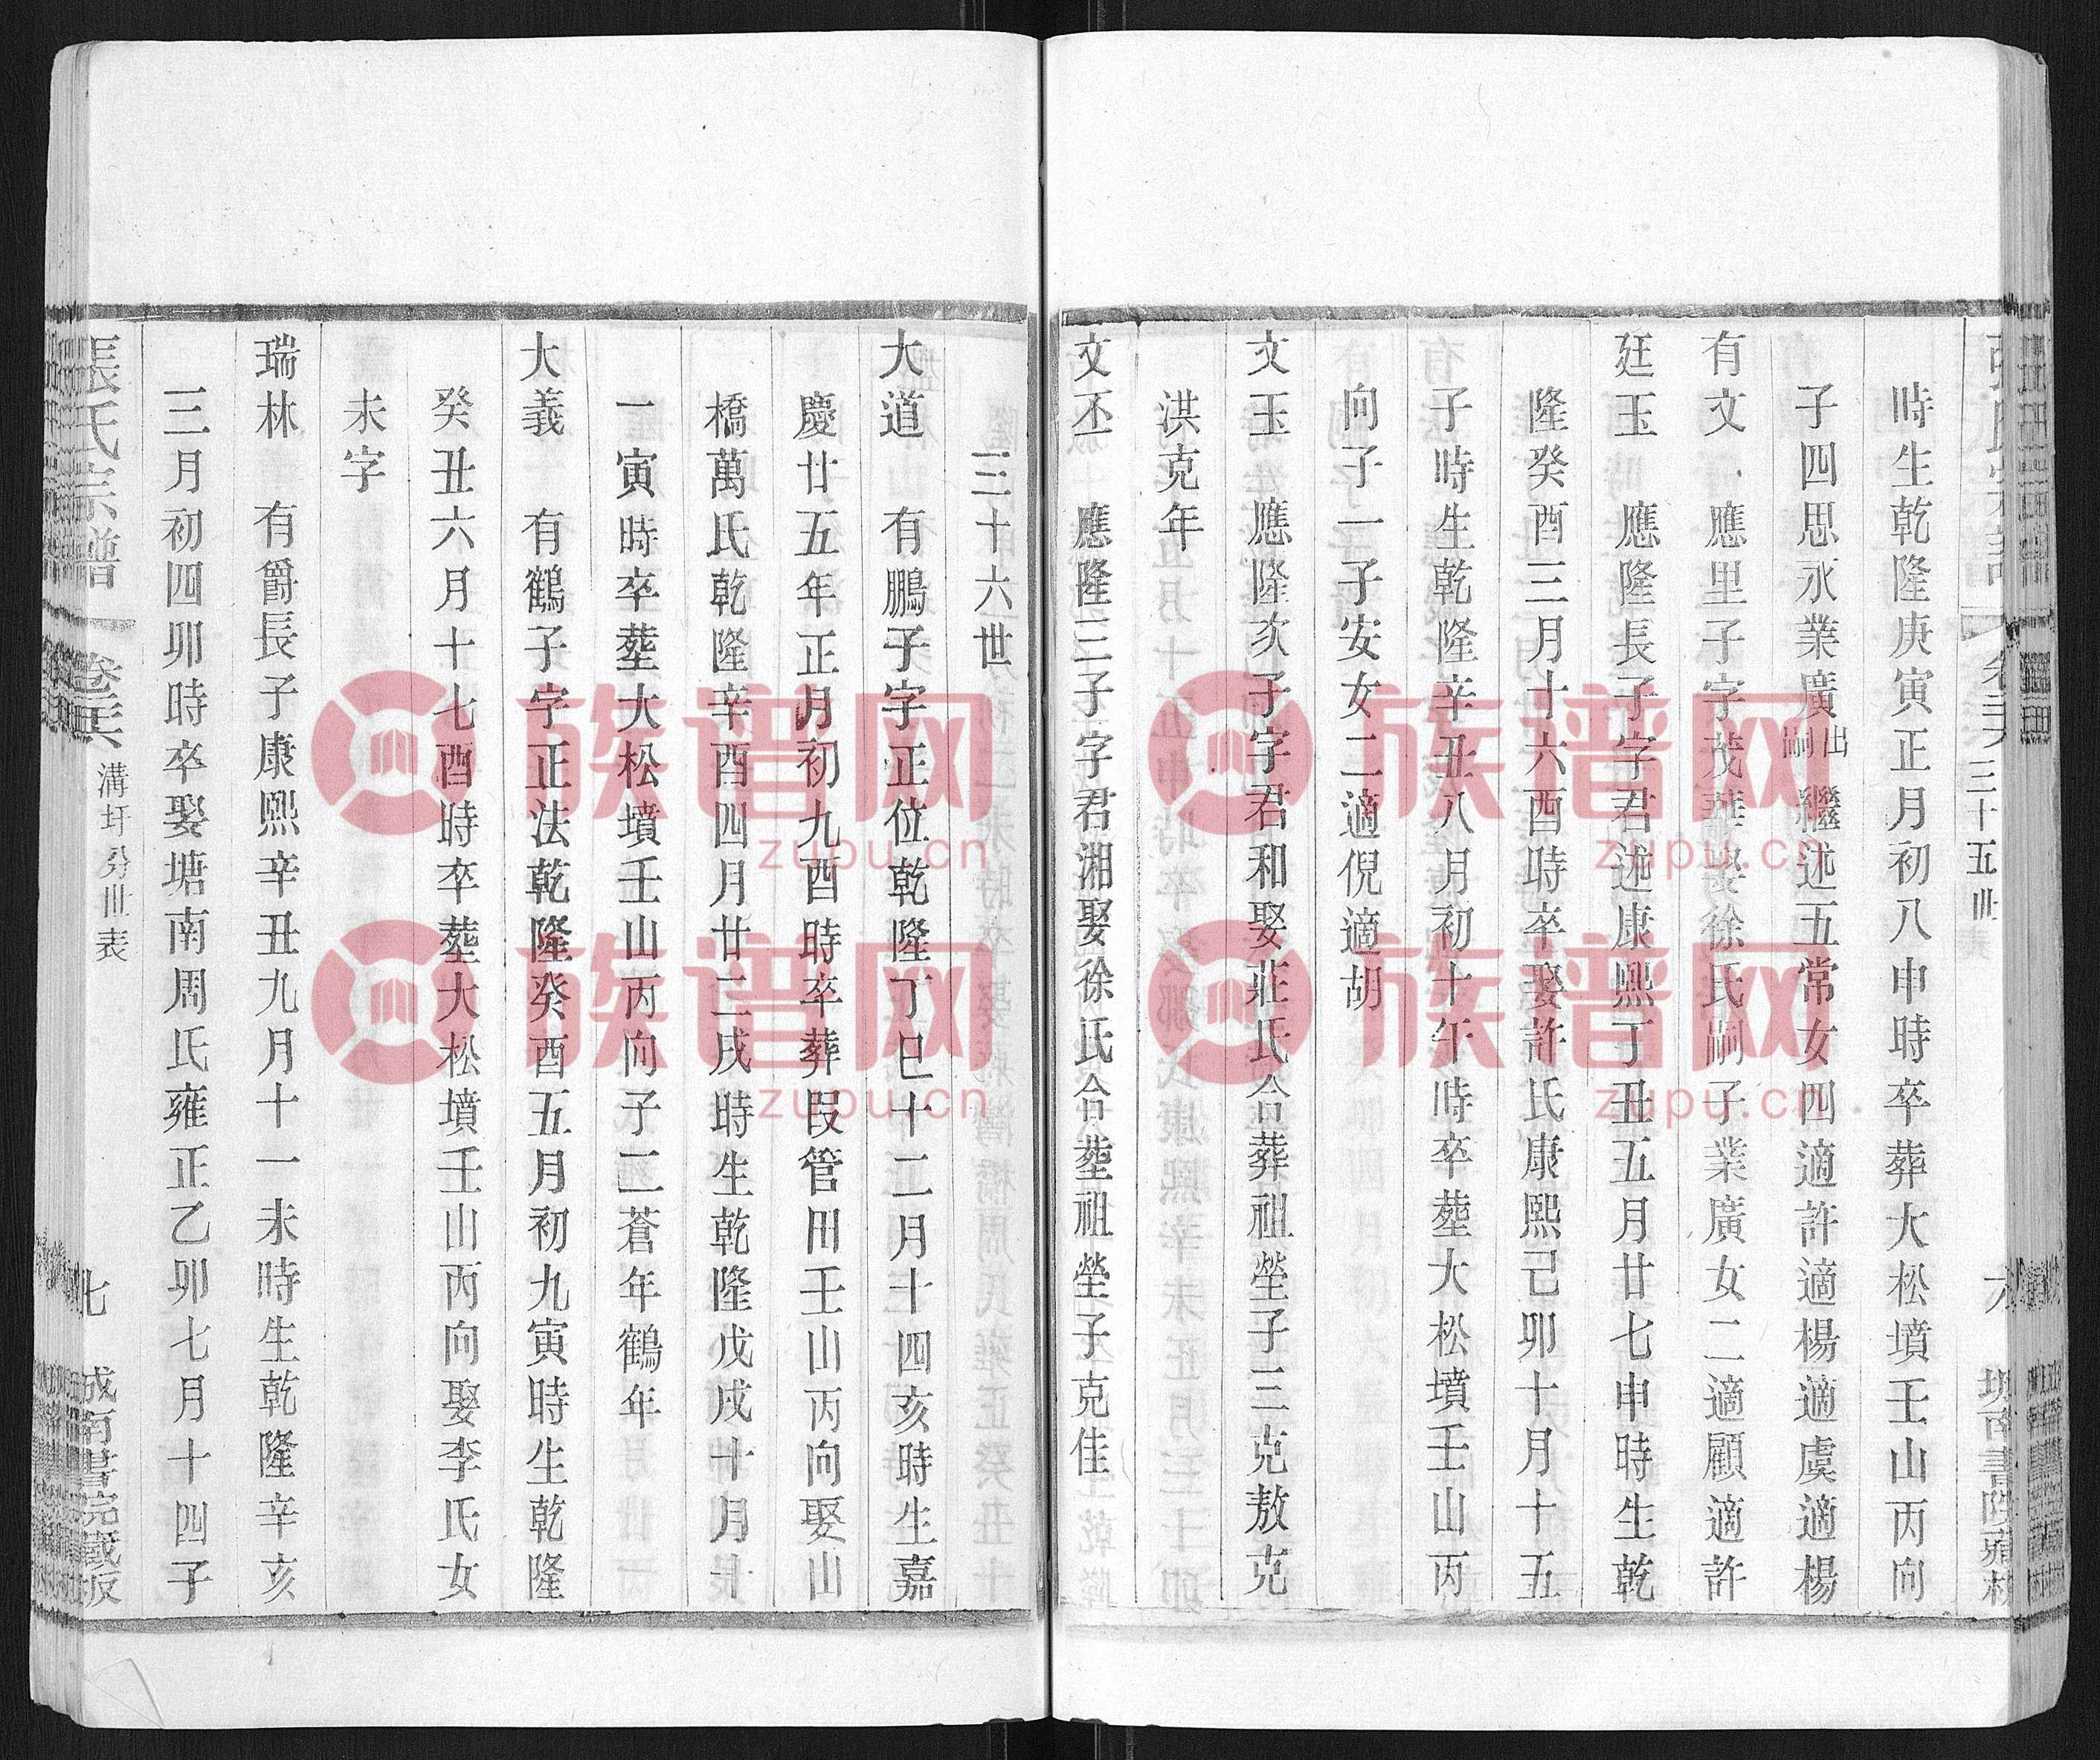 三十五世
六
時生乾隆庚寅正月初八申時卒葬大松墳壬山丙向
子四思永業廣出嗣繼述五常女四適許適楊適虞適楊
有文 應里子字茂華娶徐氏嗣子業廣女二適顧適許
廷玉 應隆長子字君述康熙丁丑五月廿七申時生乾
隆癸酉三月十六酉時卒娶許氏康熙己卯十月十五
子時生乾隆辛丑八月初十午時卒塟大松墳壬山丙
向子一子安女二適倪適胡
文玉 應隆次子字君和娶莊氏合葬祖塋子三克敖克
洪克年
文丕 應隆三子字君湘娶徐氏合塟祖塋子克佳
三十六世
大道 有鵬子字正位乾隆丁巳十二月十四亥時生嘉
慶廿五年正月初九酉時卒葬段管田壬山丙向娶山
橋萬氏乾隆辛酉四月廿二戌時生乾隆戊戌十月
一寅時卒塟大松墳壬山丙向子二蒼年鶴年
大義 有鶴子字正法乾隆癸酉五月初九寅時生乾隆
癸丑六月十七酉時卒塟大松墳壬山丙向娶李氏女
未字
瑞林 有爵長子康熙辛丑九月十一未時生乾隆辛亥
三月初四卯時卒娶塘南周氏雍正乙卯七月十四子
張氏宗譜
溝圩分世表
七
族谱网
zupu.cn
族谱网
zupu.cn
族谱网
zupu.cn
族谱网
zupu.cn